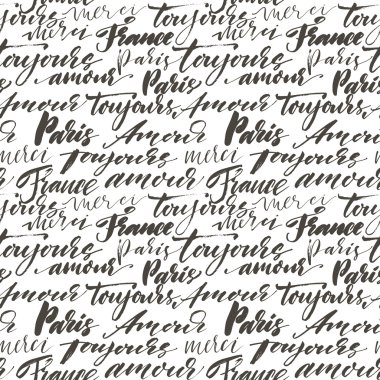 France merci toujours France
toujours merci France toujours merci France
toujours Paris toujours Paris
amour Paris amour Paris
Amour toujours, Amour toujours,
Paris Amour Paris Amour
merci toujours merci toujours
France amour France amour
toujours merci France toujours merci France
toujours Paris toujours Paris
amour Paris amour Paris
Amour toujours, Amour toujours,
Paris Amour Paris Amour
merci toujours merci toujours
France amour France amour